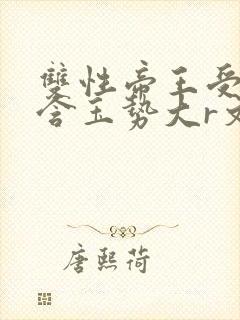 雙性帝王受
含玉勢大r文
唐熙荷